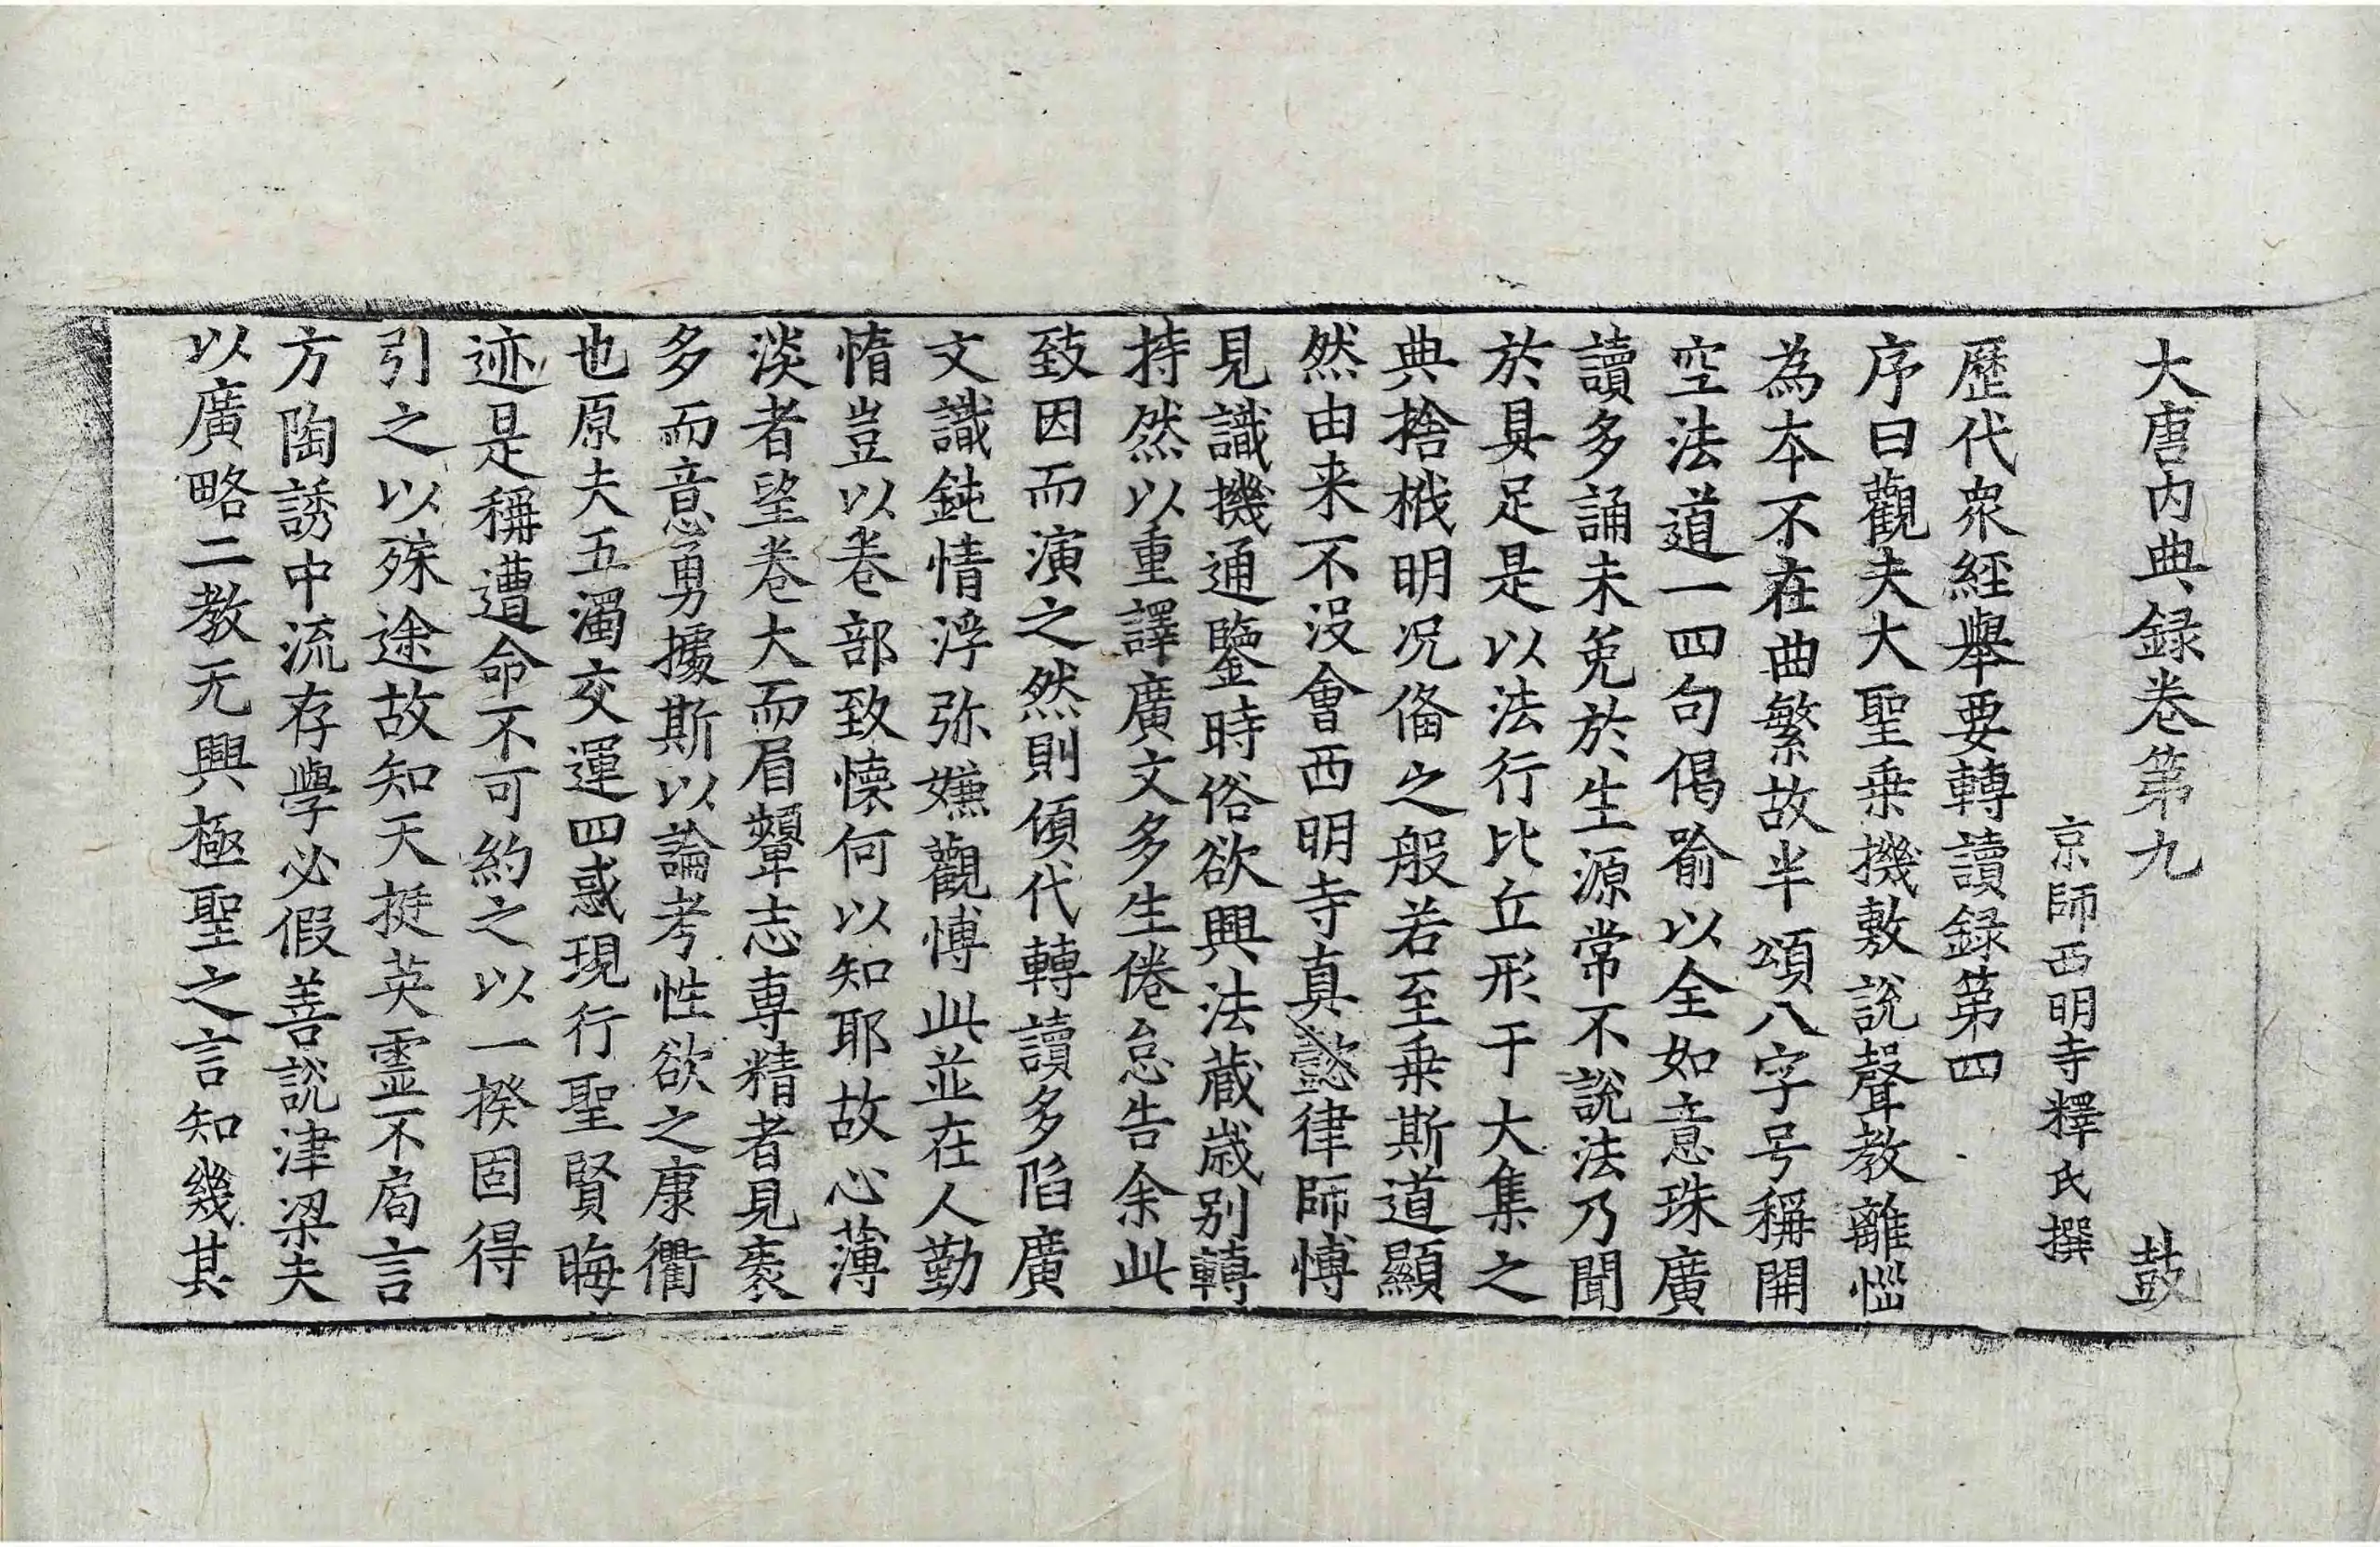 大唐内典録卷第九 鼓
京師西明寺釋氏撰
歷代衆經舉要轉讀録第四
序曰觀夫大聖乗機敷說聲教離惱
為本不在曲繁故半頌八字号稱開
空法道一四句偈喻以全如意珠廣
讀多誦未免於生源常不說法乃聞
於具足是以法行比丘形于大集之
典捨栰明况俻之般若至乗斯道顯
然由来不没會西明寺真懿律師愽
見識機通鑒時俗欲興法蔵歳别轉
持然以重譯廣文多生倦怠告余此
致因而演之然則傾代轉讀多陷廣
文識鈍情浮弥嫌觀愽此並在人勤
惰豈以卷部致懐何以知耶故心薄
淡者望卷大而眉顰志専精者見袠
多而意勇據斯以論考性欲之康衢
也原夫五濁交運四惑現行聖賢晦
迹是稱遭命不可約之以一揆固得
引之以殊途故知天挺英霊不局言
方陶誘中流存學必假善說津梁夫
以廣略二教无興極聖之言知幾其